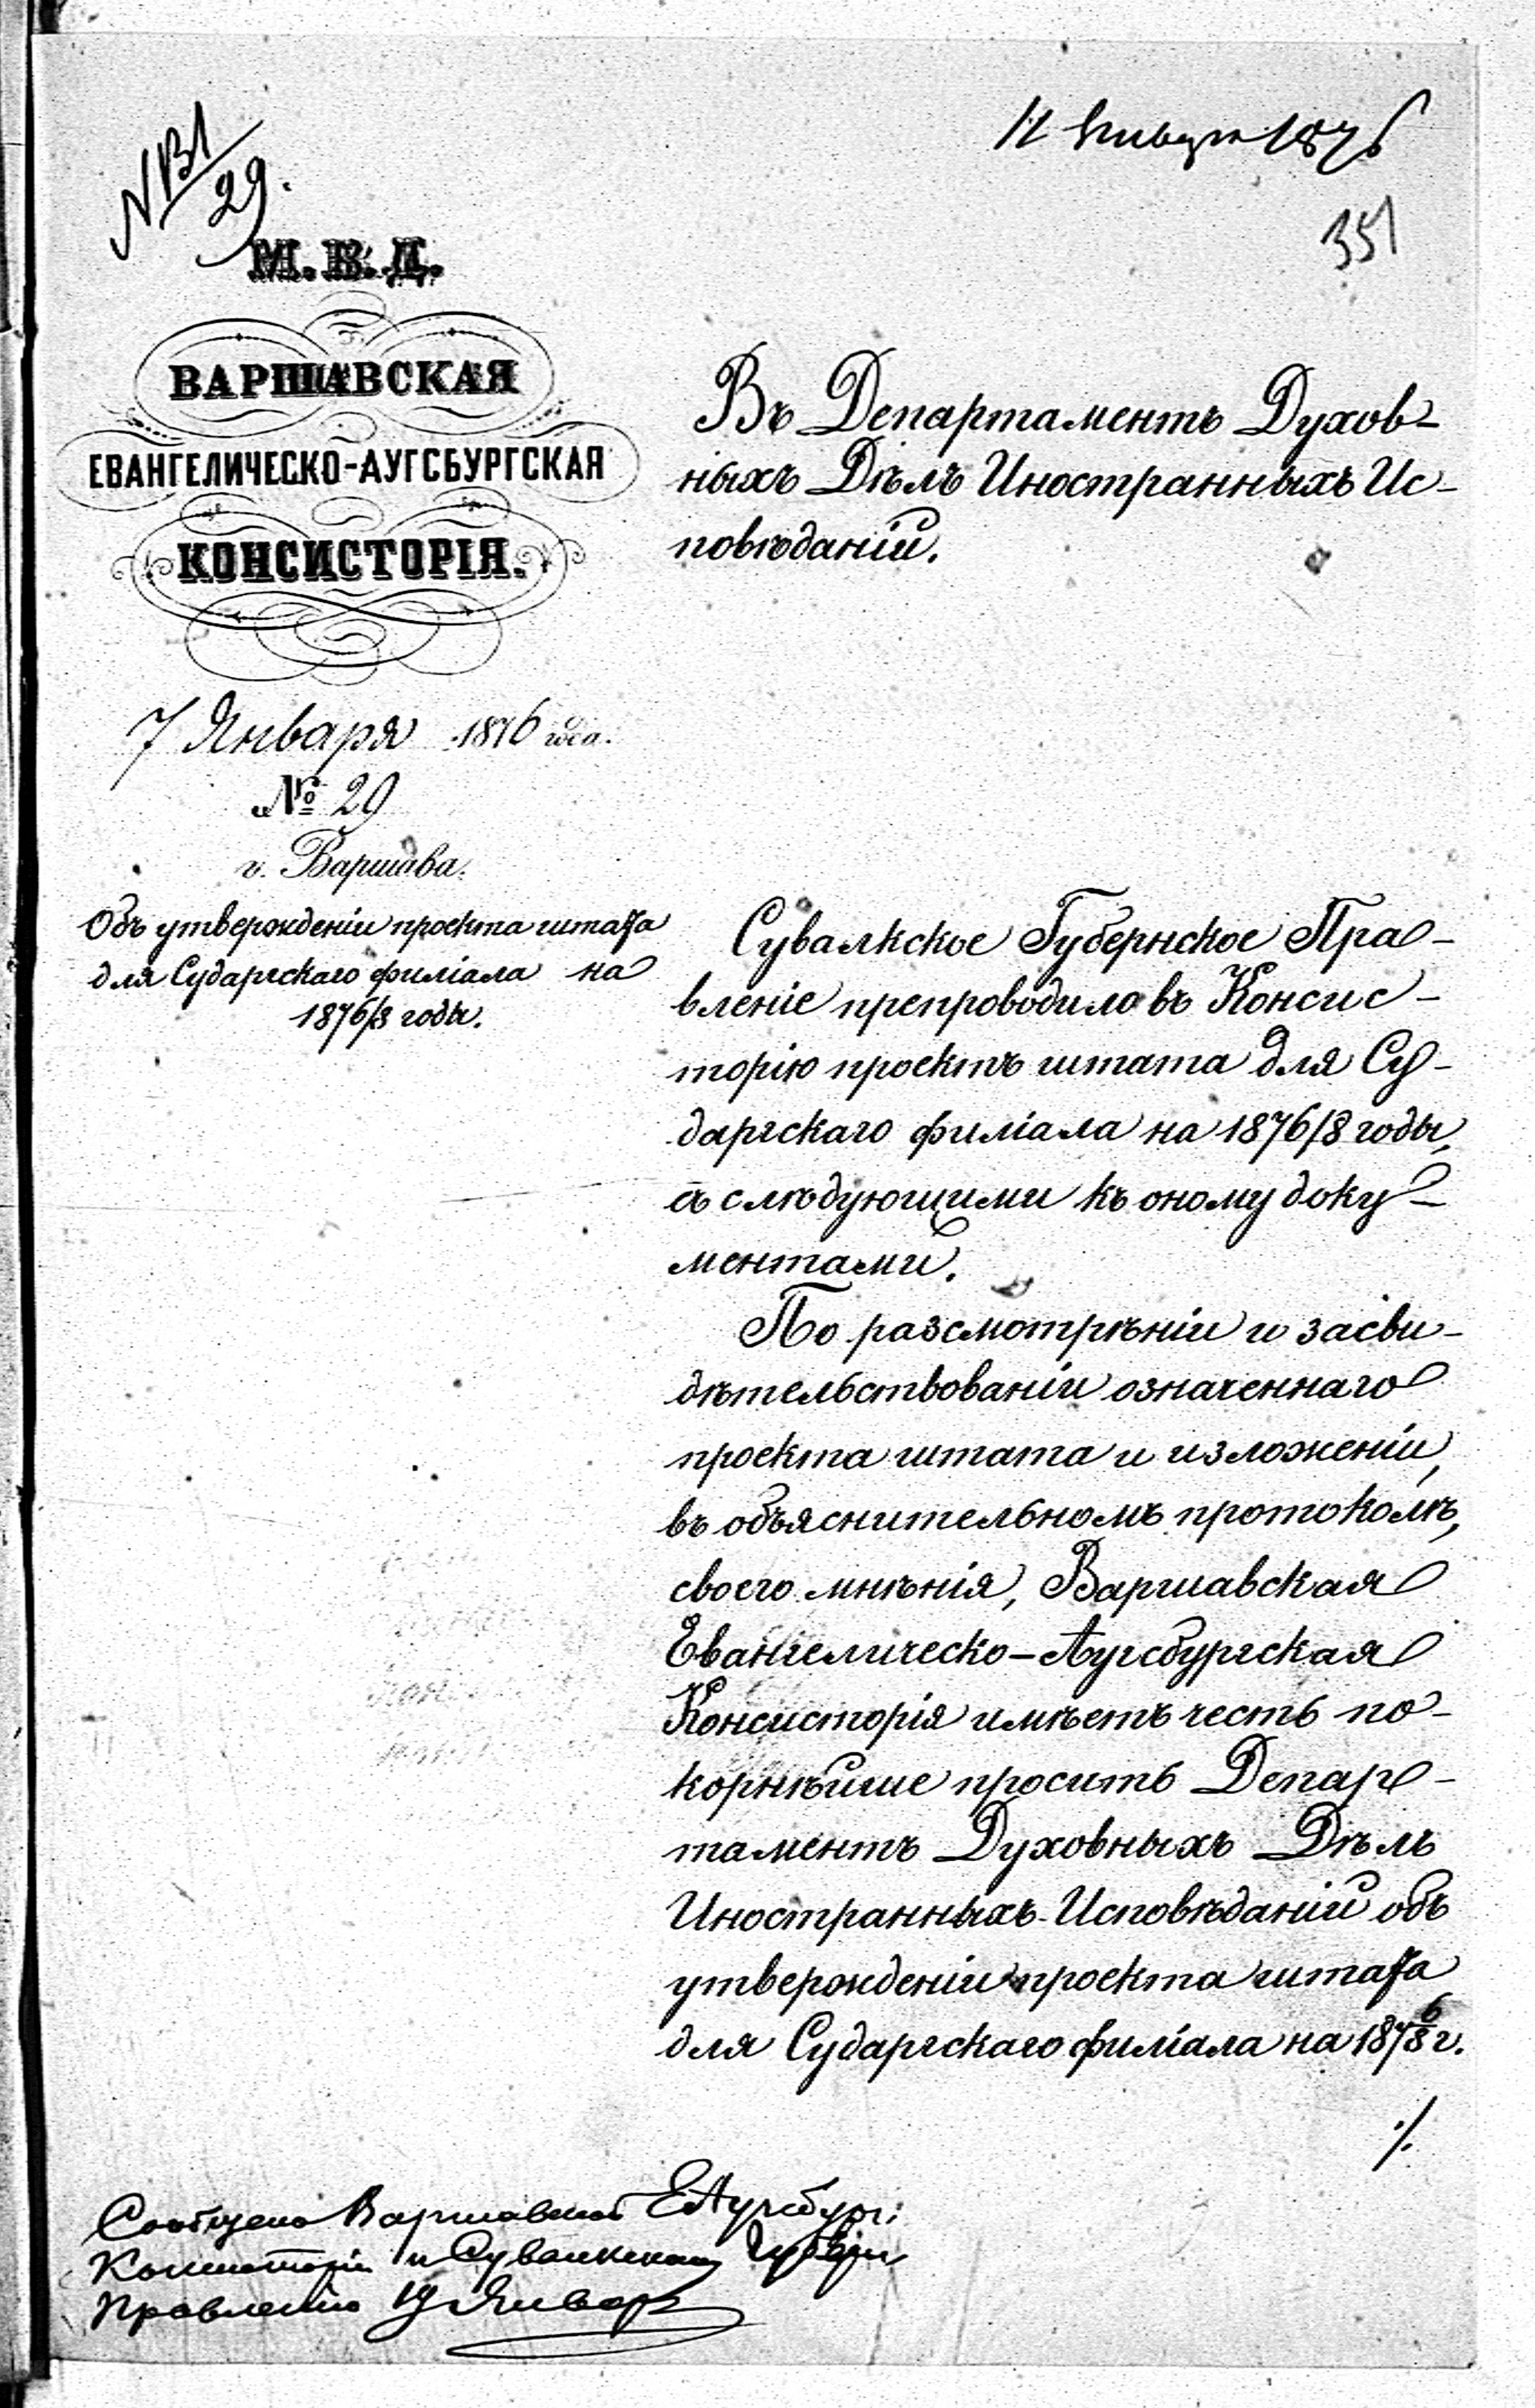 12 Января 1876
351
№ 131/29.
М. В. Д.
ВАРШАВСКАЯ
ЕВАНГЕЛИЧЕСКО-АУГСБУРГСКАЯ
КОНСИСТОРІЯ.
7 Января 1876 года.
№ 29
г. Варшава.
Объ утвержденіи проекта штата
для Сударгскаго филіала на
1876/8 годы.
Въ Департаментъ Духов-
ныхъ Дѣлъ Иностранныхъ Ис-
повѣданій.
Сувалкское Губернское Пра-
вленіе препроводило въ Консис-
торію проектъ штата для Су-
даргскаго филіала на 1876/8 годы,
съ слѣдующими къ оному доку-
ментами.
По разсмотрѣніи и засви-
дѣтельствованіи означеннаго
проекта штата и изложеніи,
въ объяснительномъ протоколѣ,
своего мнѣнія, Варшавская
Евангелическо-Аугсбургская
Консисторія имѣетъ честь по-
корнѣйше просить Депар-
таментъ Духовныхъ Дѣлъ
Иностранныхъ Исповѣданій объ
утвержденіи проекта штата
для Сударгскаго филіала на 1876/8 г.
./.
Сообщено Варшавской Е Аугсбург:
Консисторіи и Сувалкскому Губерн
Правленію 19 Января